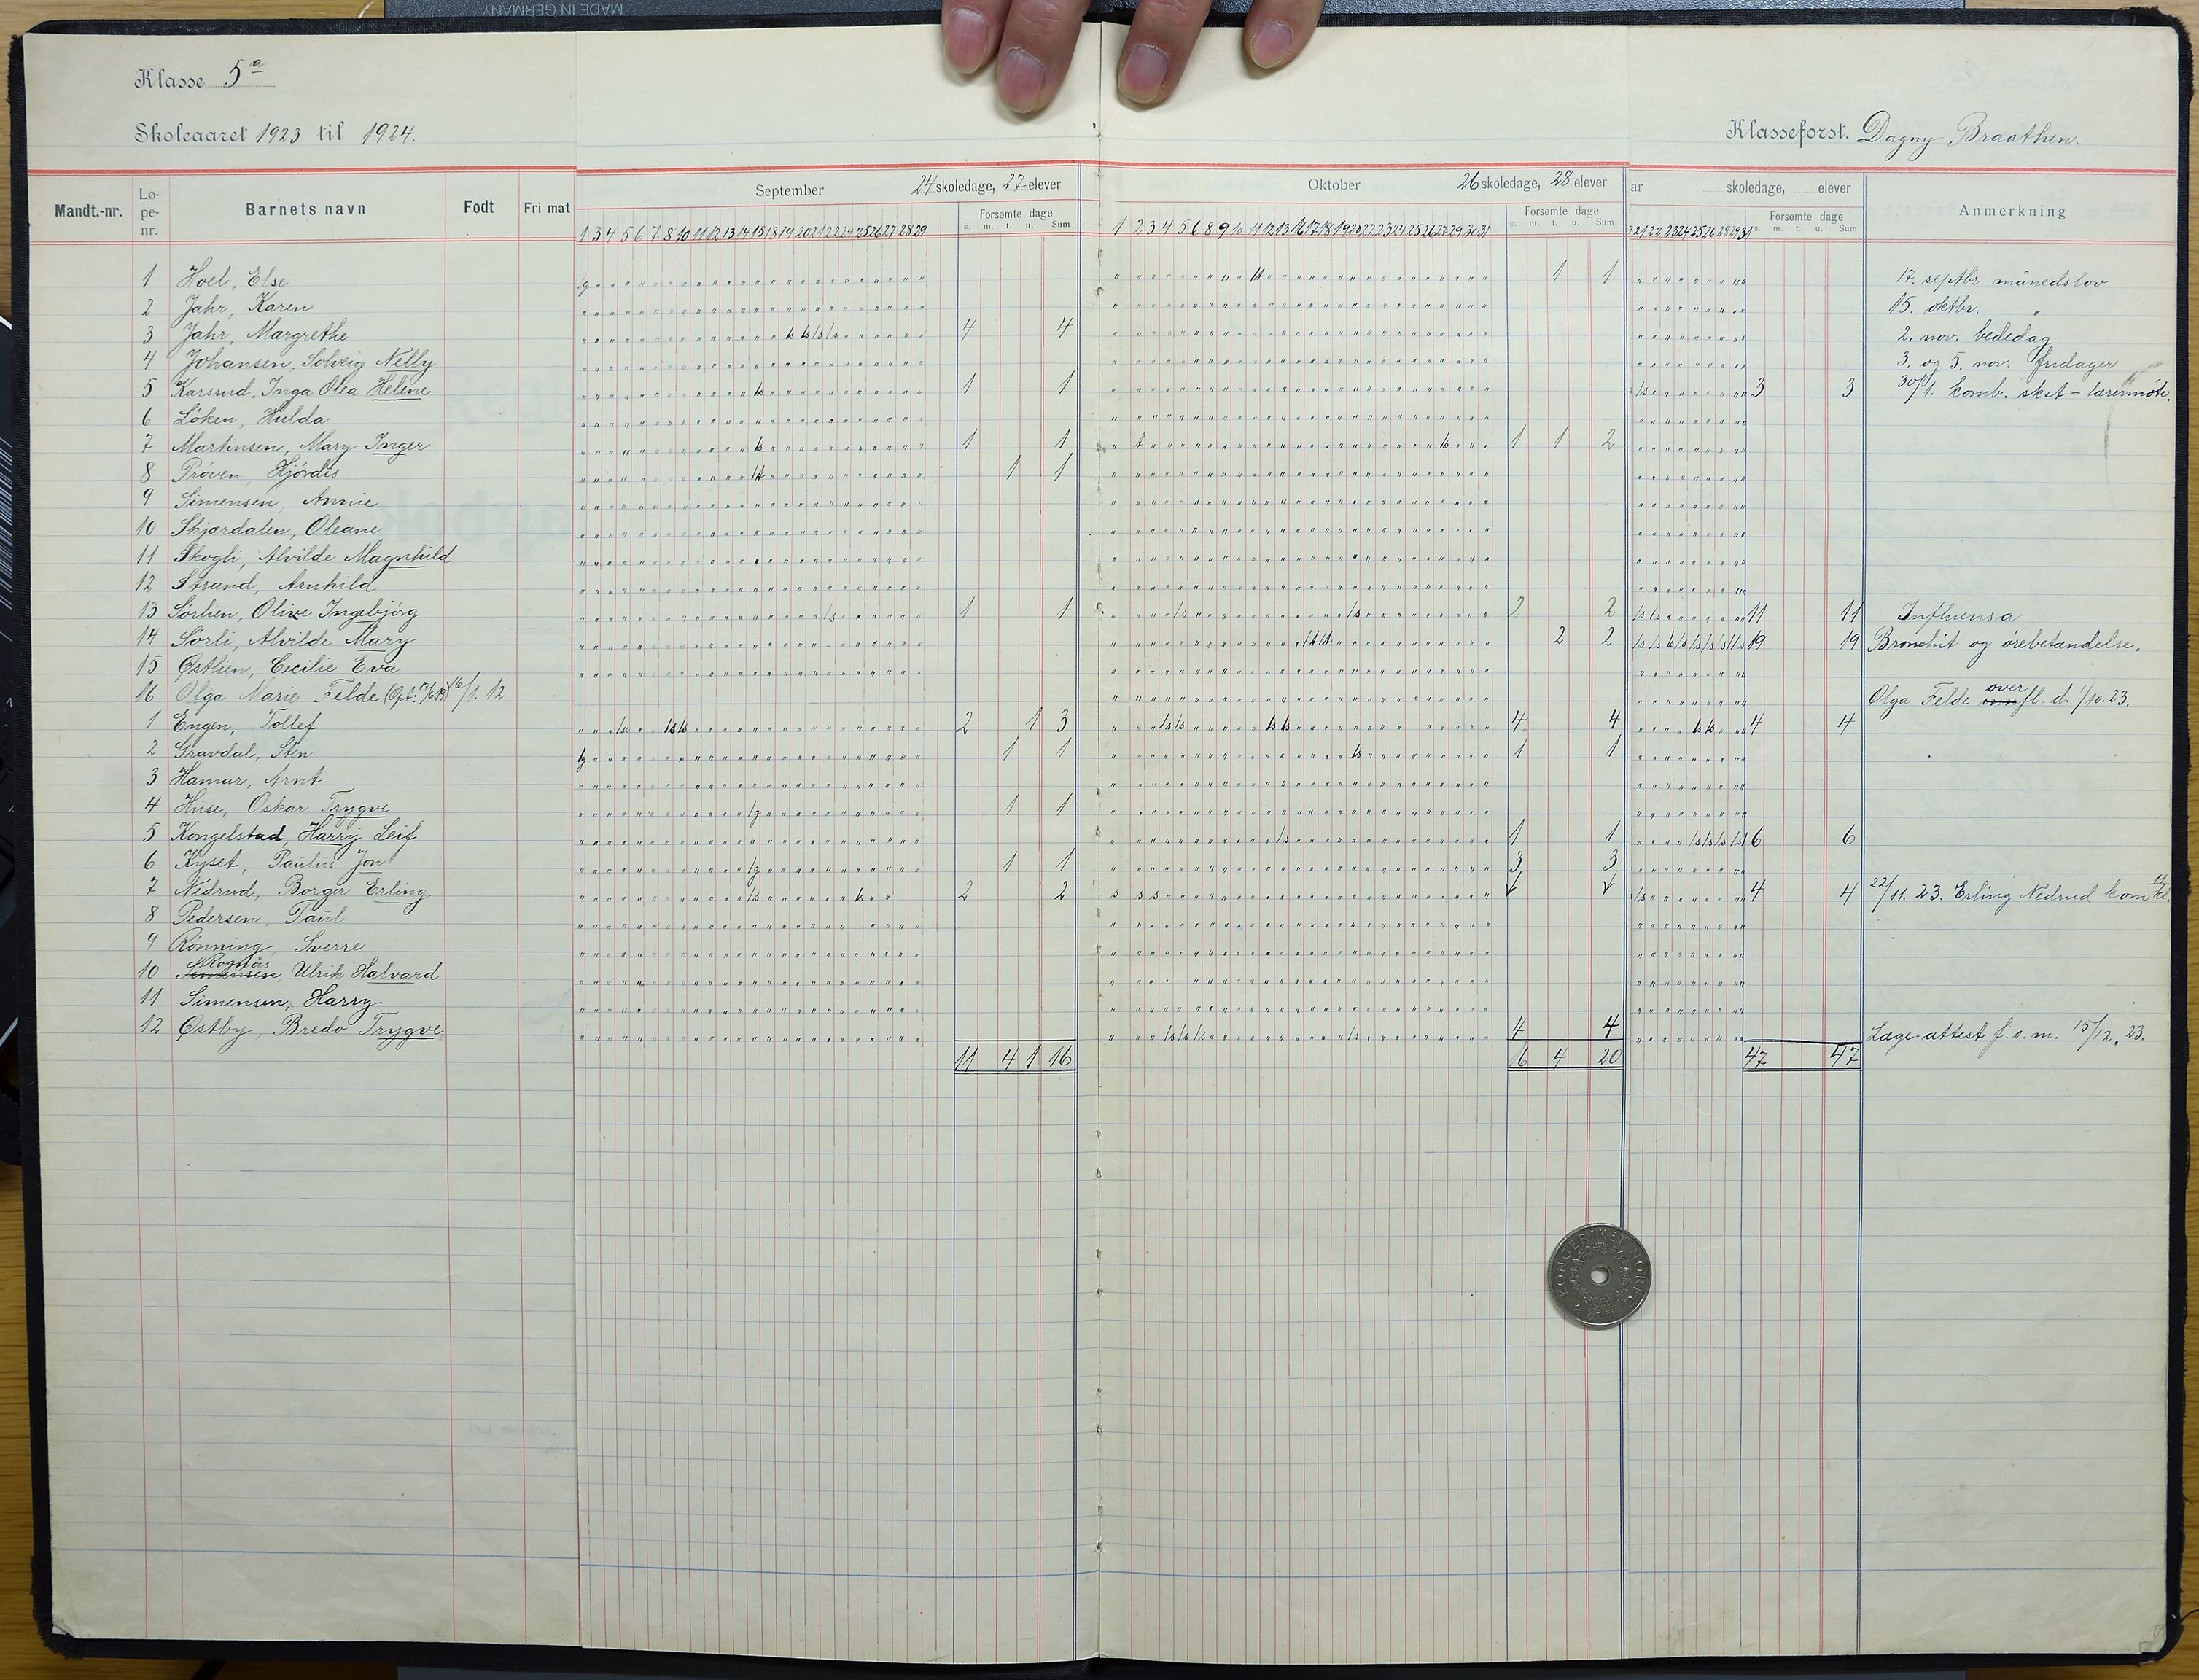 MADE IN GERMANY
Klasse 5a
Skoleaaret 1923 til 1924.
Klasseforst. Dagny Braathen.
Mandt.-nr. Lø-pe-nr. Barnets navn Født Fri mat
September 24 skoledage, 27 elever
Forsømte dage
s. m. t. u. Sum
1 3 4 5 6 7 8 10 11 12 13 14 15 18 19 20 21 22 24 25 26 27 28 29
Oktober 26 skoledage, 28 elever
Forsømte dage
s. m. t. u. Sum
1 2 3 4 5 6 8 9 10 11 12 13 16 17 18 19 20 22 23 24 25 26 27 29 30 31
ar skoledage, elever
Forsømte dage
s. m. t. u. Sum
21 22 23 24 25 26 28 29 31
Anmerkning
1 Hoel, Else 1 1 17. septbr. månedslov
2 Jahr, Karen 15. oktbr. "
3 Jahr, Margrethe 4 4 2. nov. bededag
4 Johansen, Solveig Nelly 3. og 5. nov. fridager
5 Karsrud, Inga Olea Helene 1 1 3 3 30/1. komb. skst-lærermøte.
6 Løken, Hulda
7 Martinsen, Mary Inger 1 1 1 1 2
8 Prøven, Hjørdis 1 1
9 Simensen, Annie
10 Skjærdalen, Oleane
11 Skogli, Alvilde Magnhild
12 Strand, Arnhild
13 Sørlien, Olive Ingebjørg 1 1 2 2 11 11 Influensa
14 Sørli, Alvilde Mary 2 2 19 19 Bronchit og ørebetændelse.
15 Østlien, Cecilie Eva
16 Olga Marie Felde 16/1. 12 Olga Felde overfl. d. 1/10. 23.
1 Engen, Tollef 2 1 3 4 4 4 4
2 Gravdal, Sten 1 1 1 1
3 Hamar, Arnt
4 Huse, Oskar Trygve 1 1
5 Kongelstad, Harry Leif 1 1 6 6
6 Kyset, Paulus Jon 1 1 3 3
7 Nedrud, Borger Erling 2 2 4 4 22/11. 23. Erling Nedrud kom
8 Pedersen, Paul
9 Rønning, Sverre
10 Rognås, Ulrik Halvard
11 Simensen, Harry
12 Østby, Bredo Trygve 4 4 Læge-attest f.o.m. 15/12. 23.
11 4 1 16 6 4 20 47 47
KONGERIKET NORGE